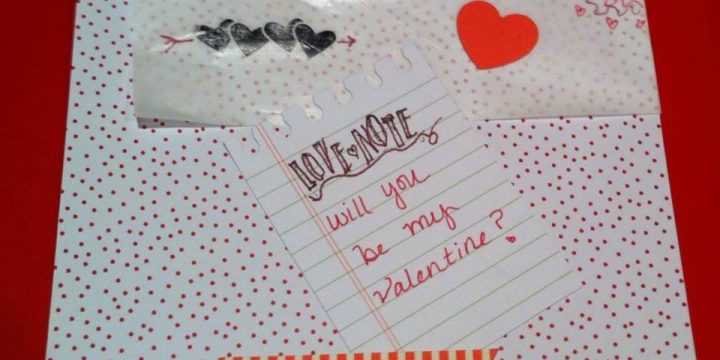 LOVE NOTE
will you
be my
Valentine?